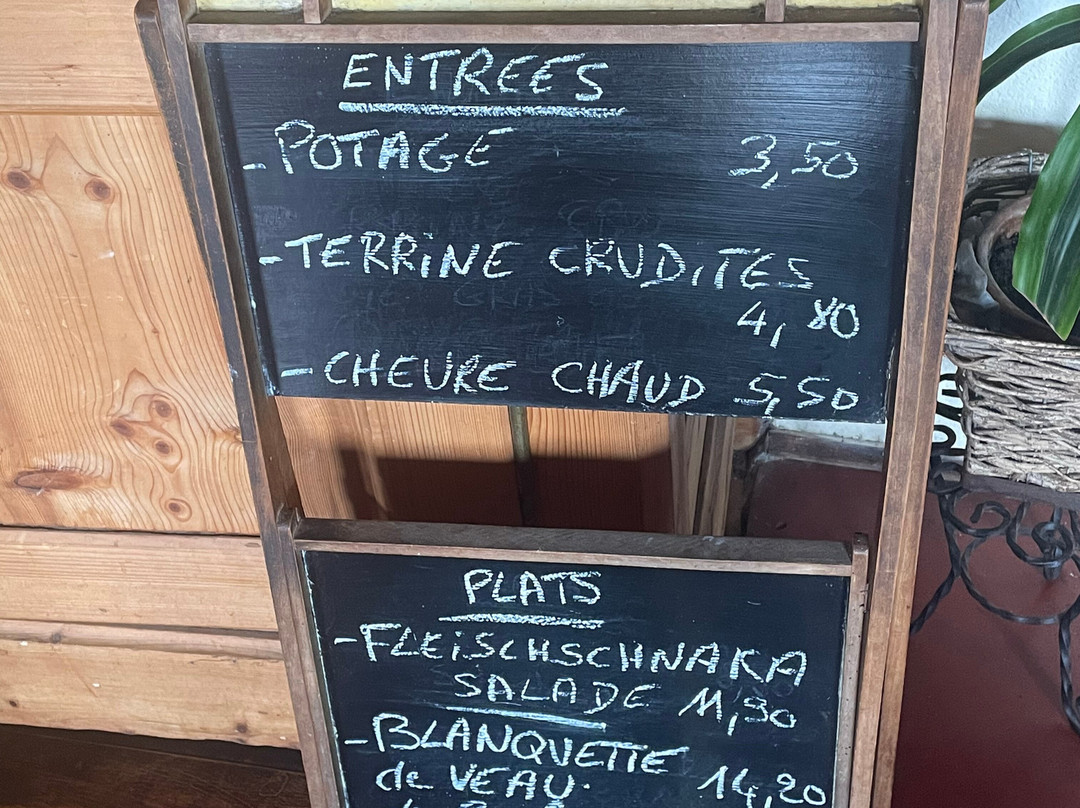 ENTREES
-POTAGE 3,50
-TERRiNE CRUDiTES
4,80
-CHEVRE CHAUD 5,50
PLATS
-FLEiSCHSCHNAKA
SALADE 11,90
-BLANQUETTE
de VEAU. 14,20